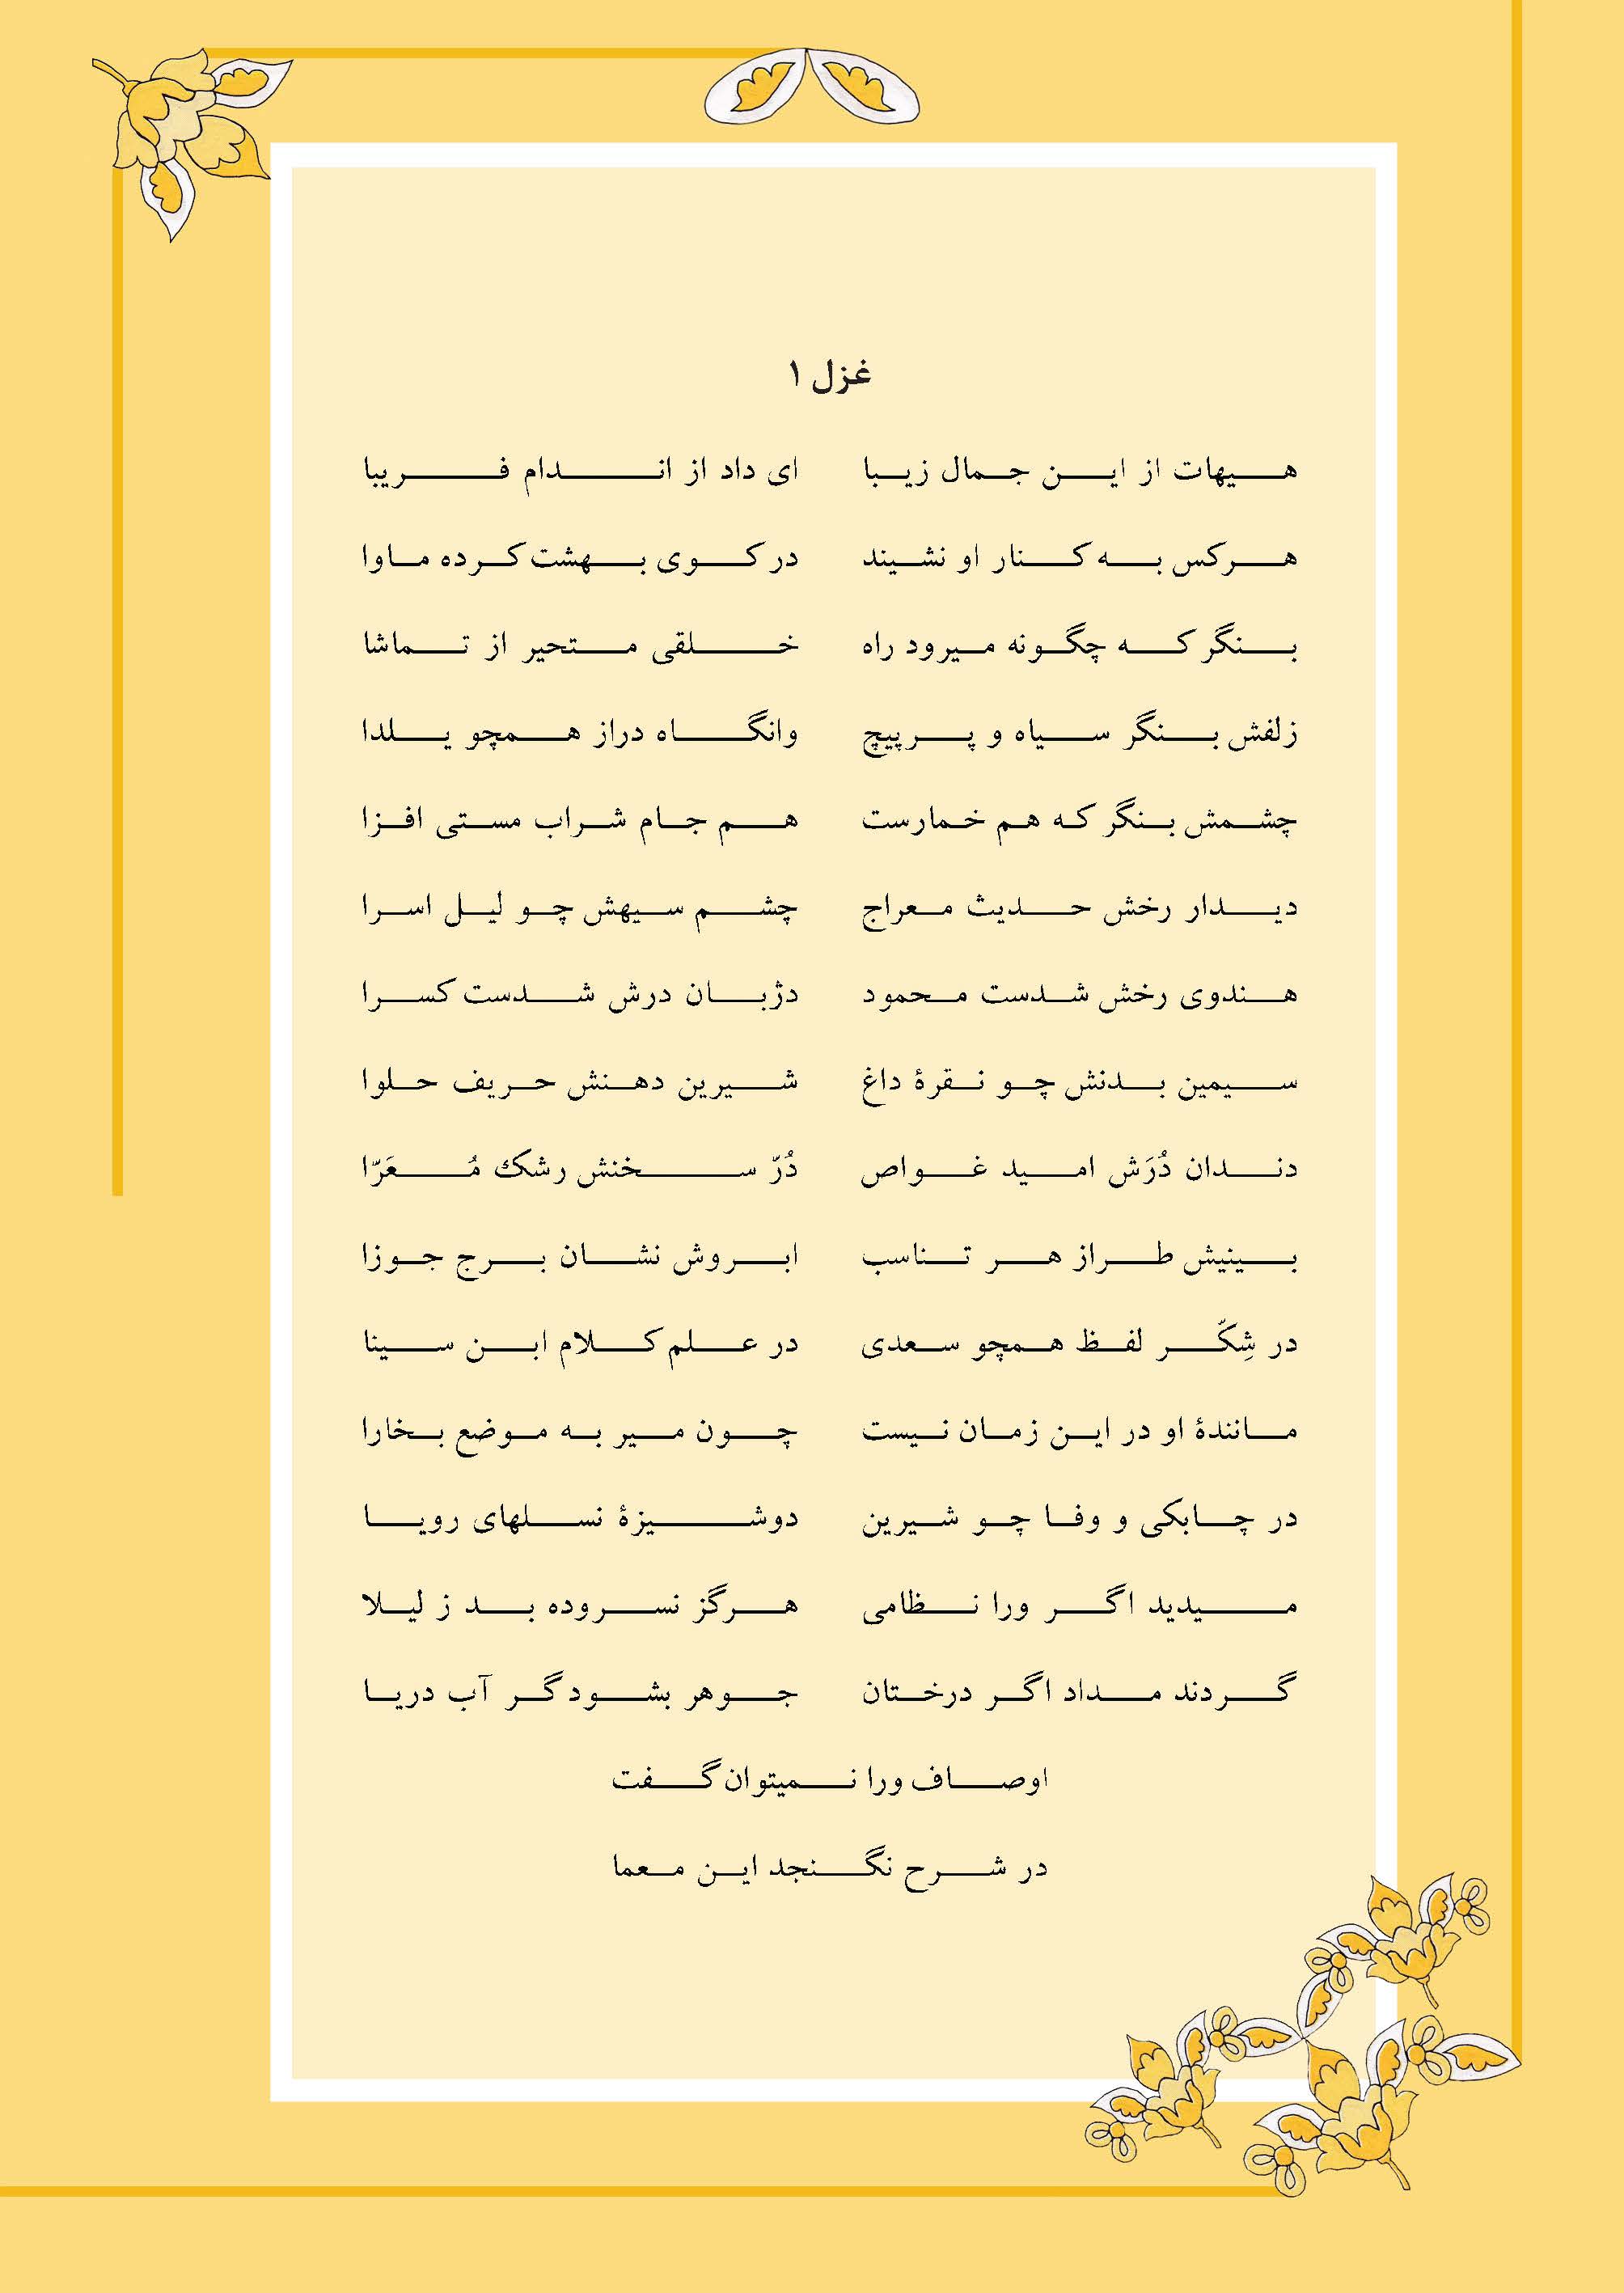 غزل ۱
هیهات از این جمال زیبا ای داد از اندام فریبا
هرکس به کنار او نشیند در کوی بهشت کرده ماوا
بنگر که چگونه میرود راه خلقی متحیر از تماشا
زلفش بنگر سیاه و پرپیچ وانگاه دراز همچو یلدا
چشمش بنگر که هم خمارست هم جام شراب مستی افزا
دیدار رخش حدیث معراج چشم سیهش چو لیل اسرا
هندوی رخش شدست محمود دژبان درش شدست کسرا
سیمین بدنش چو نقرۀ داغ شیرین دهنش حریف حلوا
دندان دُرَش امید غواص دُرّ سخنش رشک مُعَرّا
بینیش طراز هر تناسب ابروش نشان برج جوزا
در شِکّر لفظ همچو سعدی در علم کلام ابن سینا
مانندۀ او در این زمان نیست چون میر به موضع بخارا
در چابکی و وفا چو شیرین دوشیزۀ نسلهای رویا
میدید اگر ورا نظامی هرگز نسروده بد ز لیلا
گردند مداد اگر درختان جوهر بشود گر آب دریا
اوصاف ورا نمیتوان گفت
در شرح نگنجد این معما